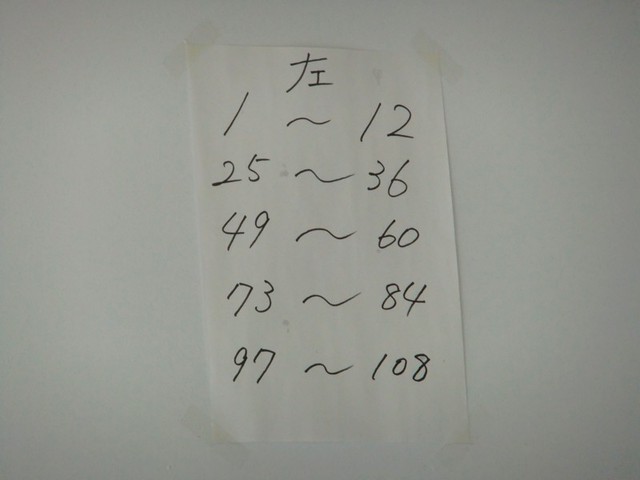 左
1 ～ 12
25 ～ 36
49 ～ 60
73 ～ 84
97 ～ 108